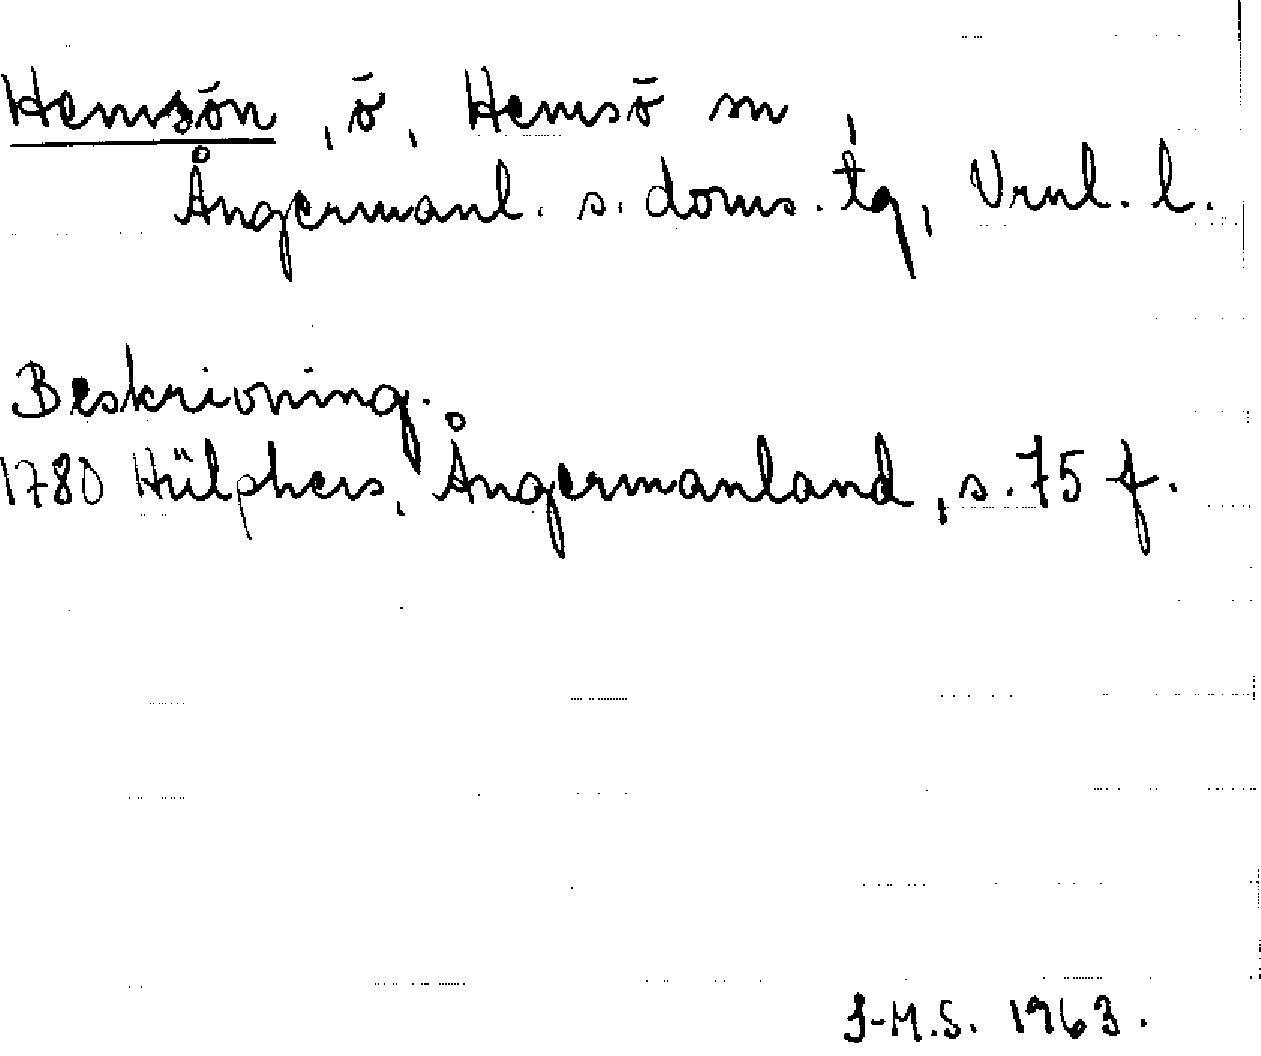 Hemsön, ö, Hemsö sn,
Ångermanl. s. doms. tg, Vrnl. l.
Beskrivning.
1780 Hülphers, Ångermanland, s. 75 f.
I-M.S. 1963.